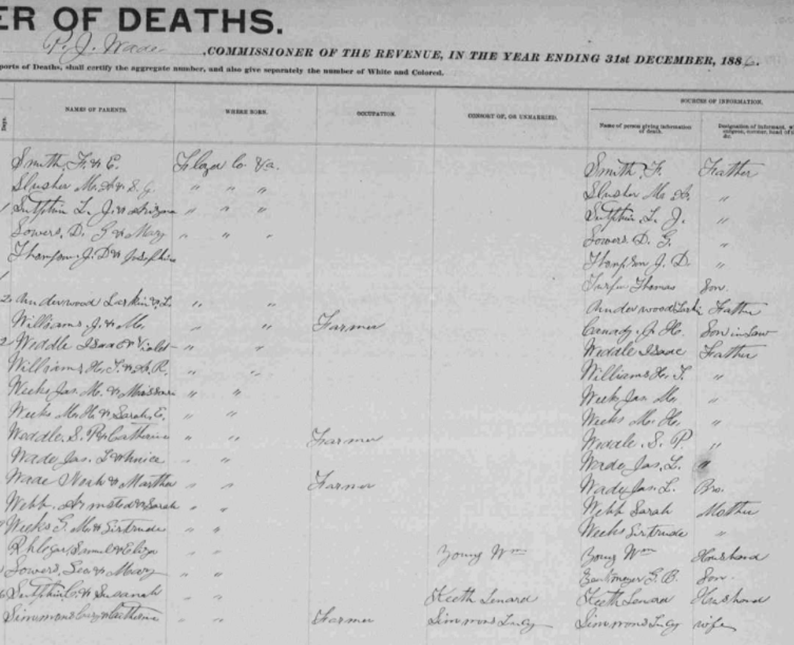 ER OF DEATHS.
P. J. Wade ,COMMISSIONER OF THE REVENUE, IN THE YEAR ENDING 31st DECEMBER, 1886.
ports of Deaths, shall certify the aggregate number, and also give separately the number of White and Colored.
NAMES OF PARENTS. WHERE BORN. OCCUPATION. CONSORT OF, OR UNMARRIED. SOURCES OF INFORMATION.
Name of person giving information of death. Designation of informant,
Smith, F. & E. Floyd Co Va. Smith F. Father
Slusher M. & S. J. " " " Slusher M. "
Sutphin L. J. & Arizona " " " Sutphin L. J. "
Sowers, D. G & Mary " " " Sowers D. G. "
Thompson J. D & Josephine Thompson J. D "
Thomas Son
Underwood Larkin & L. " " Underwood Larkin Father
Williams J. & M. " " Farmer Canady J. H. Son in Law
Weddle Isaac & Violet " " Weddle Isaac Father
Williams H. T. & A. R. " " Williams H. T. "
Weeks Jas. M. & " " Weeks Jas. M. "
Weeks M. H. & Sarah E. " " Weeks M. H. "
Weddle, S. P. & Catherine " " Farmer Weddle S. P. "
Wade Jas. L & " " Wade Jas. L. "
Wade & Martha " " Farmer Wade Jas. L. Bro.
Webb Armsted & Sarah " " Webb Sarah Mother
Weeks G. M. & Girtrude " " Weeks Girtrude "
Phlegar & Eliza " " Young Wm Young Wm Husband
Sowers, Geo & Mary " " G. B. Son
Sutphin C. & Susanah " " Keith Lenard Keith Lenard Husband
Simmons & Catherine " " Farmer Simmons Lucy Simmons Lucy wife